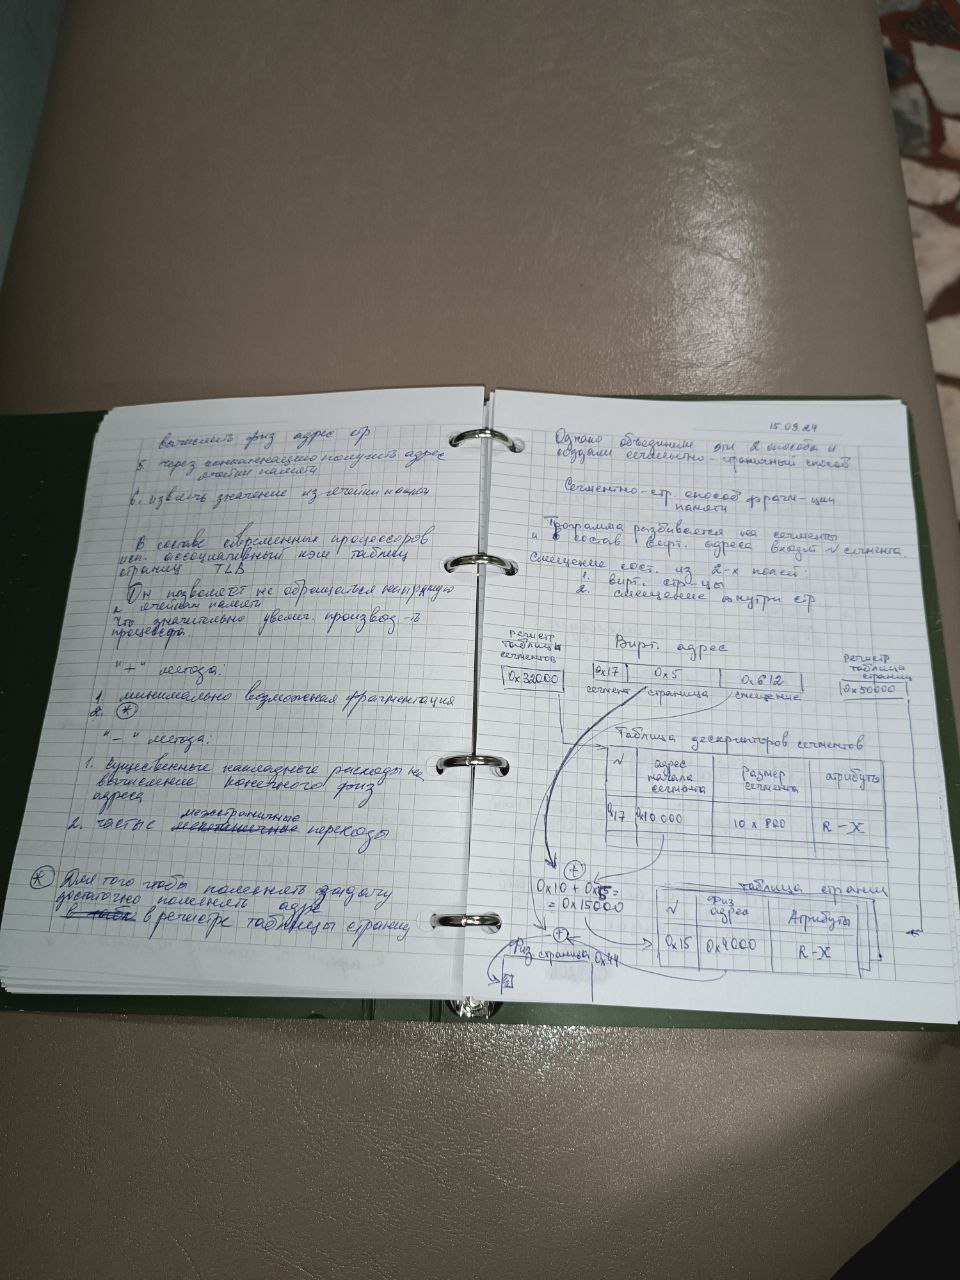 вычислить физ адрес стр
5. через конкатенацию получить адрес
ячейки памяти
6. извлечь значение из ячейки памяти
В составе современных процессоров
исп. ассоциативный кэш таблиц
страниц TLB
Он позволяет не обращаться напрямую
к ячейкам памяти
Что значительно увелич. производ-ть
процессора.
"+" метода:
1. минимально возможная фрагментация
2. *
"-" метода:
1. Существенные накладные расходы на
вычисление конечного физ
адреса
межстраничные
2. частые переходы
* Для того чтобы поменять задачу
достаточно поменять адрес
в регистре таблицы страниц
15.09.24
Однако объединили эти 2 способа и
создали сегментно-страничный способ
Сегментно-стр. способ фрагм-ции
памяти
Программа разбивается на сегменты
и в состав вирт. адреса входит № сегмента
Смещение сост. из 2-х полей:
1. вирт. стр-цы
2. смещение внутри стр
регистр
таблицы
сегментов
0x32000
Вирт. адрес
0x17 0x5 0x612
сегмент страница смещение
регистр
таблица
страниц
0x50000
Таблица дескрипторов сегментов
№ адрес начала сегмента размер сегмента атрибуты
0x17 0x10000 10x800 R-X
+
0x10 + 0x5 =
= 0x15000
таблица страниц
№ физ адрес Атрибуты
0x15 0x4000 R-X
+
Физ. страница 0x44